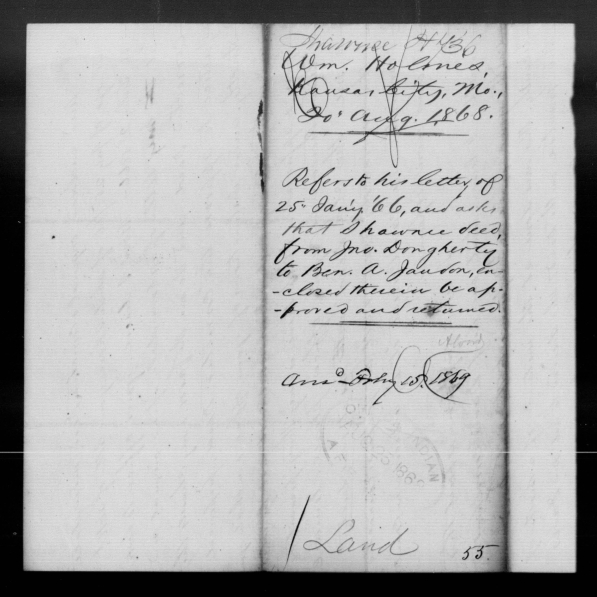 Shawnee H 436
Wm. Holmes,
Kansas City, Mo.,
20" Aug. 1868.
Refers to his letter of
25" Jan'y '66, and asks
that Shawnee deed,
from Jno. Dougherty
to Ben. A. Jaudon, en-
-closed therein be ap-
-proved and returned.
Ans'd Feby 15. 1869
INDIAN
Land
55.